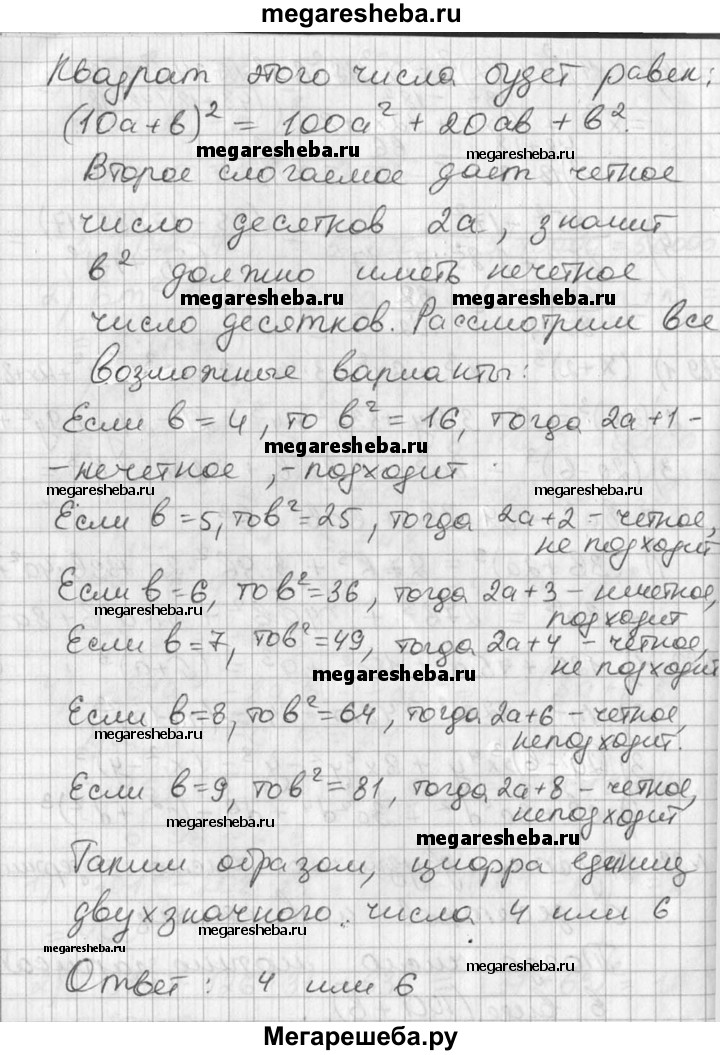 megaresheba.ru
Квадрат этого числа будет равен:
(10а+в)² = 100а² + 20ав + в².
megaresheba.ru
megaresheba.ru
Второе слогаемое дает четное
число десятков 2а, значит
в² должно иметь нечетное
megaresheba.ru
megaresheba.ru
число десятков. Рассмотрим все
возможные варианты:
Если в = 4, то в² = 16, тогда 2а+1 -
megaresheba.ru
- нечетное, - подходит
megaresheba.ru
megaresheba.ru
Если в =5, то в²=25, тогда 2а+2 - четное,
не подходит
Если в=6, то в²=36, тогда 2а+3 - нечетное,
megaresheba.ru
подходит
Если в=7, то в²=49, тогда 2а+4 - четное,
megaresheba.ru
не подходит
Если в=8, то в²=64, тогда 2а+6 - четное,
megaresheba.ru
не подходит.
Если в=9, то в²=81, тогда 2а+8 - четное,
megaresheba.ru
не подходит
megaresheba.ru
Таким образом, цифра единиц
двухзначного числа 4 или 6
megaresheba.ru
megaresheba.ru
megaresheba.ru
Ответ: 4 или 6
Мегарешеба.ру